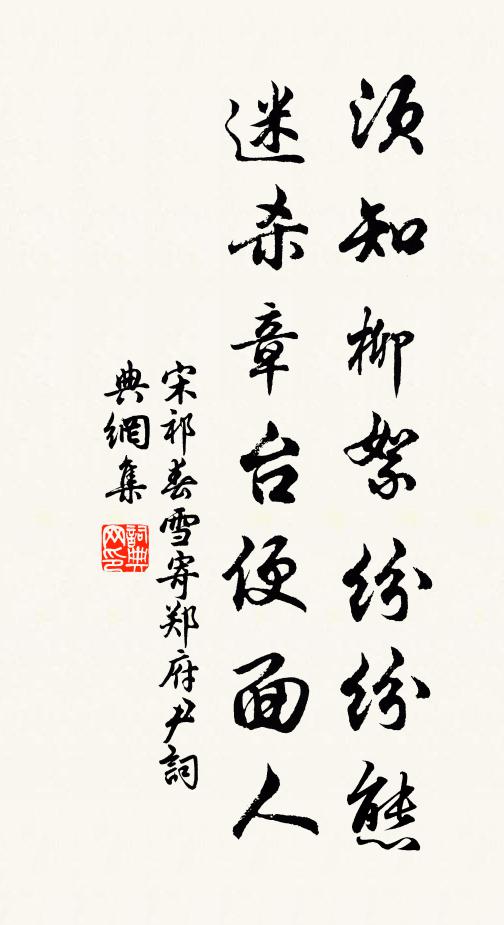 須知柳絮紛紛態
迷殺章台便面人
宋祁春雪寄郑府尹詞
典網集
詞典网印